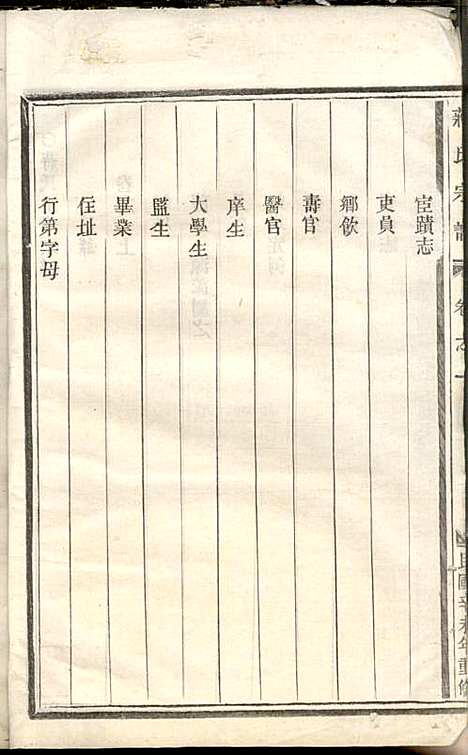 蔣氏宗譜 卷之一
民國辛未年重修
宦蹟志
吏員
鄉飲
壽官
醫官
庠生
大學生
監生
畢業
住址
行第字母